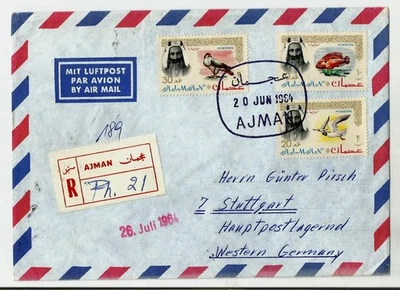 MIT LUFTPOST
PAR AVION
BY AIR MAIL
30
AJMAN
عجمان
AJMAN
عجمان
20
AJMAN
عجمان
عجمان
20 JUN 1964
AJMAN
189
R
AJMAN عجمان
Ph. 21
26. Juli 1964
Herrn Günter Pirsch
7 Stuttgart
Hauptpostlagernd
Western Germany